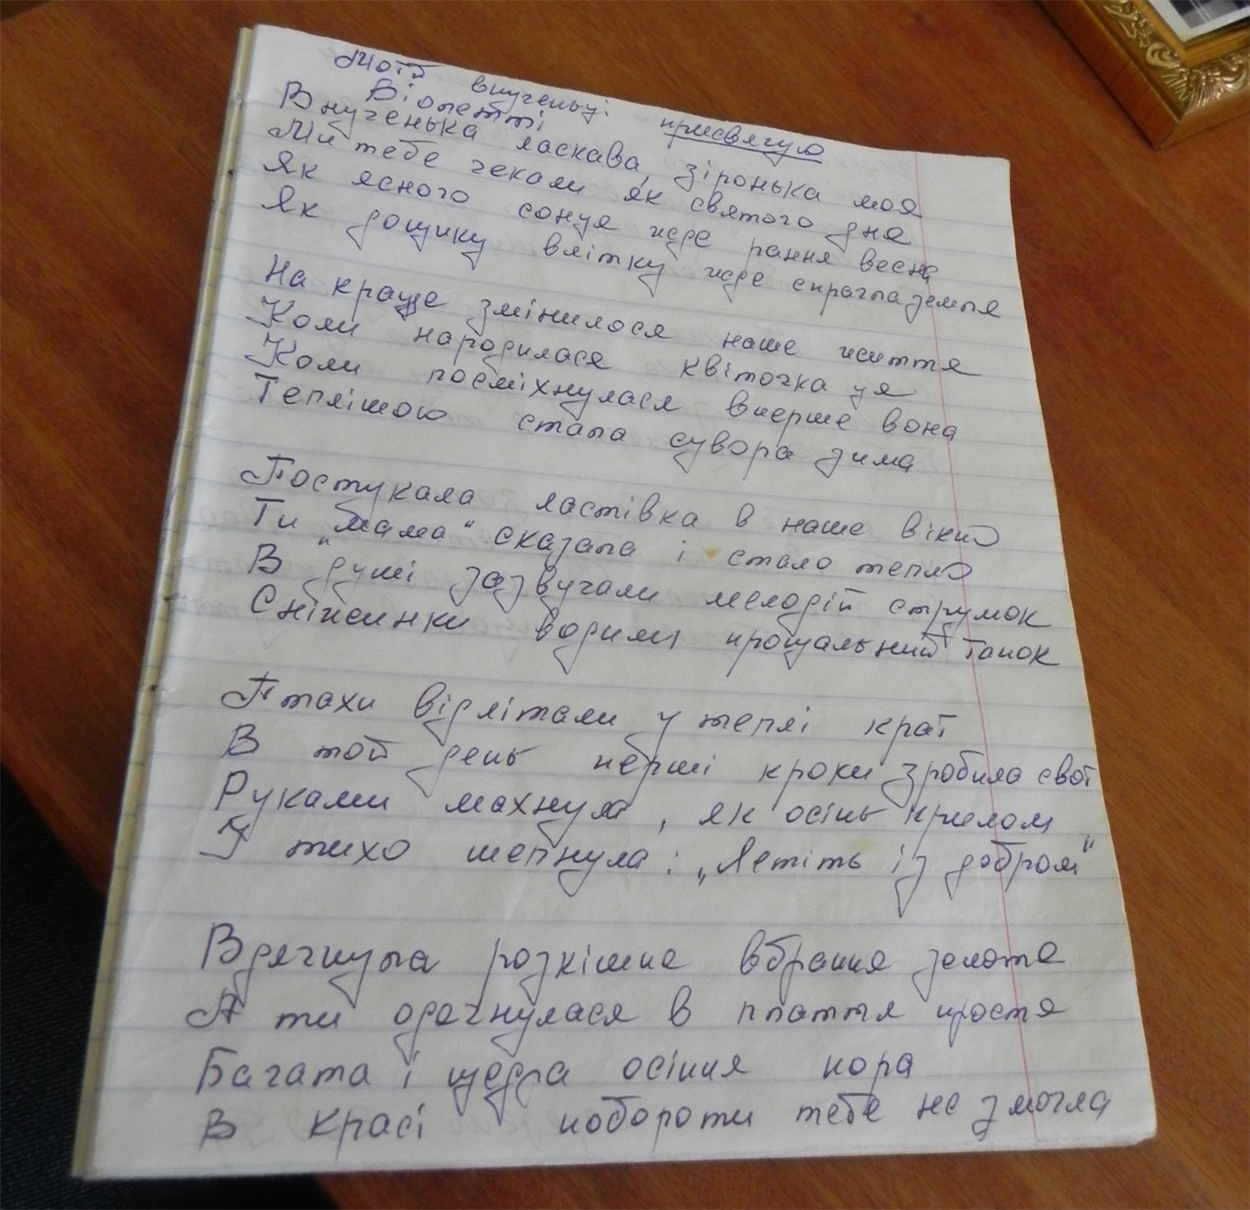 Моїй внученьці присвячую
Віолетті
Внученька ласкава, зіронька моя
Ми тебе чекали як святого дня
Як ясного сонця жде рання весна
Як дощику влітку жде спрагла земля
На краще змінилося наше життя
Коли народилася квіточка ця
Коли посміхнулася вперше вона
Теплішою стала сувора зима
Постукала ластівка в наше вікно
Ти "мама" сказала і стало тепло
В душі зазвучали мелодій струмок
Сніжинки водили прощальний танок
Птахи відлітали у теплі краї
В той день перші кроки зробила свої
Руками махнула, як осінь крилом
І тихо шепнула: „Летіть із добром"
Вдягнула розкішне вбрання золоте
А ти одягнулася в плаття просте
Багата і щедра осіння пора
В красі побороти тебе не змогла